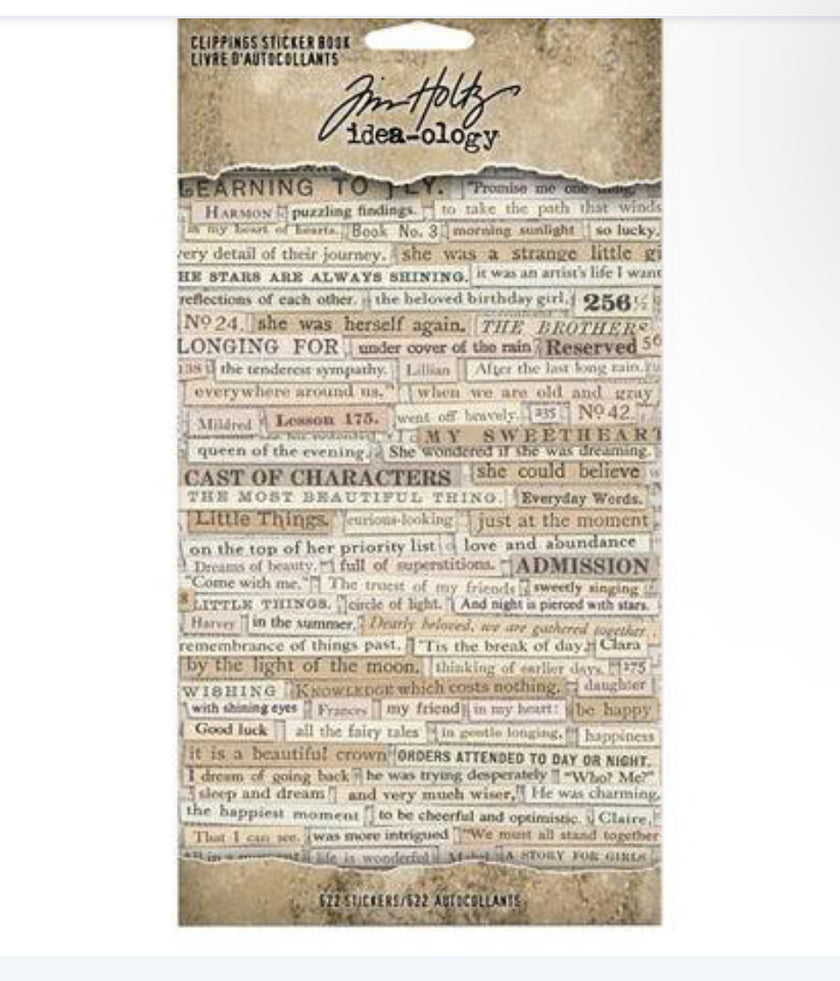 CLIPPINGS STICKER BOOK
LIVRE D'AUTOCOLLANTS
Tim Holtz
idea-ology
LEARNING TO FLY. "Promise me one thing,"
HARMON puzzling findings. to take the path that winds
in my heart of hearts. Book No. 3 morning sunlight so lucky.
very detail of their journey. she was a strange little gi
HE STARS ARE ALWAYS SHINING. it was an artist's life I want
reflections of each other. the beloved birthday girl. 256½
Nº 24. she was herself again. THE BROTHERS
LONGING FOR under cover of the rain Reserved 56
138 the tenderest sympathy. Lillian After the last long rain.
everywhere around us." when we are old and gray
Mildred Lesson 175. went off bravely. 235 Nº 42.
MY SWEETHEART
queen of the evening. She wondered if she was dreaming.
CAST OF CHARACTERS she could believe
THE MOST BEAUTIFUL THING. Everyday Words.
Little Things. curious-looking just at the moment
on the top of her priority list love and abundance
Dreams of beauty. full of superstitions. ADMISSION
"Come with me." The truest of my friends sweetly singing
8 LITTLE THINGS. circle of light. And night is pierced with stars.
Harvey in the summer. Dearly beloved, we are gathered together
remembrance of things past. "Tis the break of day. Clara
by the light of the moon. thinking of earlier days. 175
WISHING KNOWLEDGE which costs nothing. daughter
with shining eyes Frances my friend in my heart! be happy
Good luck all the fairy tales in gentle longing. happiness
it is a beautiful crown ORDERS ATTENDED TO DAY OR NIGHT.
I dream of going back he was trying desperately "Who? Me?"
sleep and dream and very much wiser," He was charming.
the happiest moment to be cheerful and optimistic. Claire,
That I can see. was more intrigued "We must all stand together
all in a moment life is wonderful Mabel A STORY FOR GIRLS
622 STICKERS/622 AUTOCOLLANTS